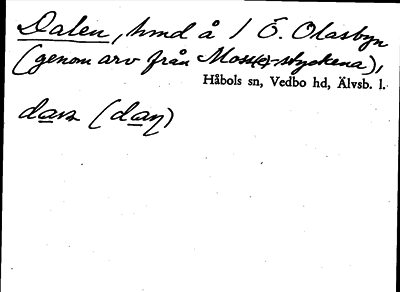 Dalen, hmd å 1 Ö. Olasbyn
(genom arv från Moss(e)styckena),
Håbols sn, Vedbo hd, Älvsb. l.